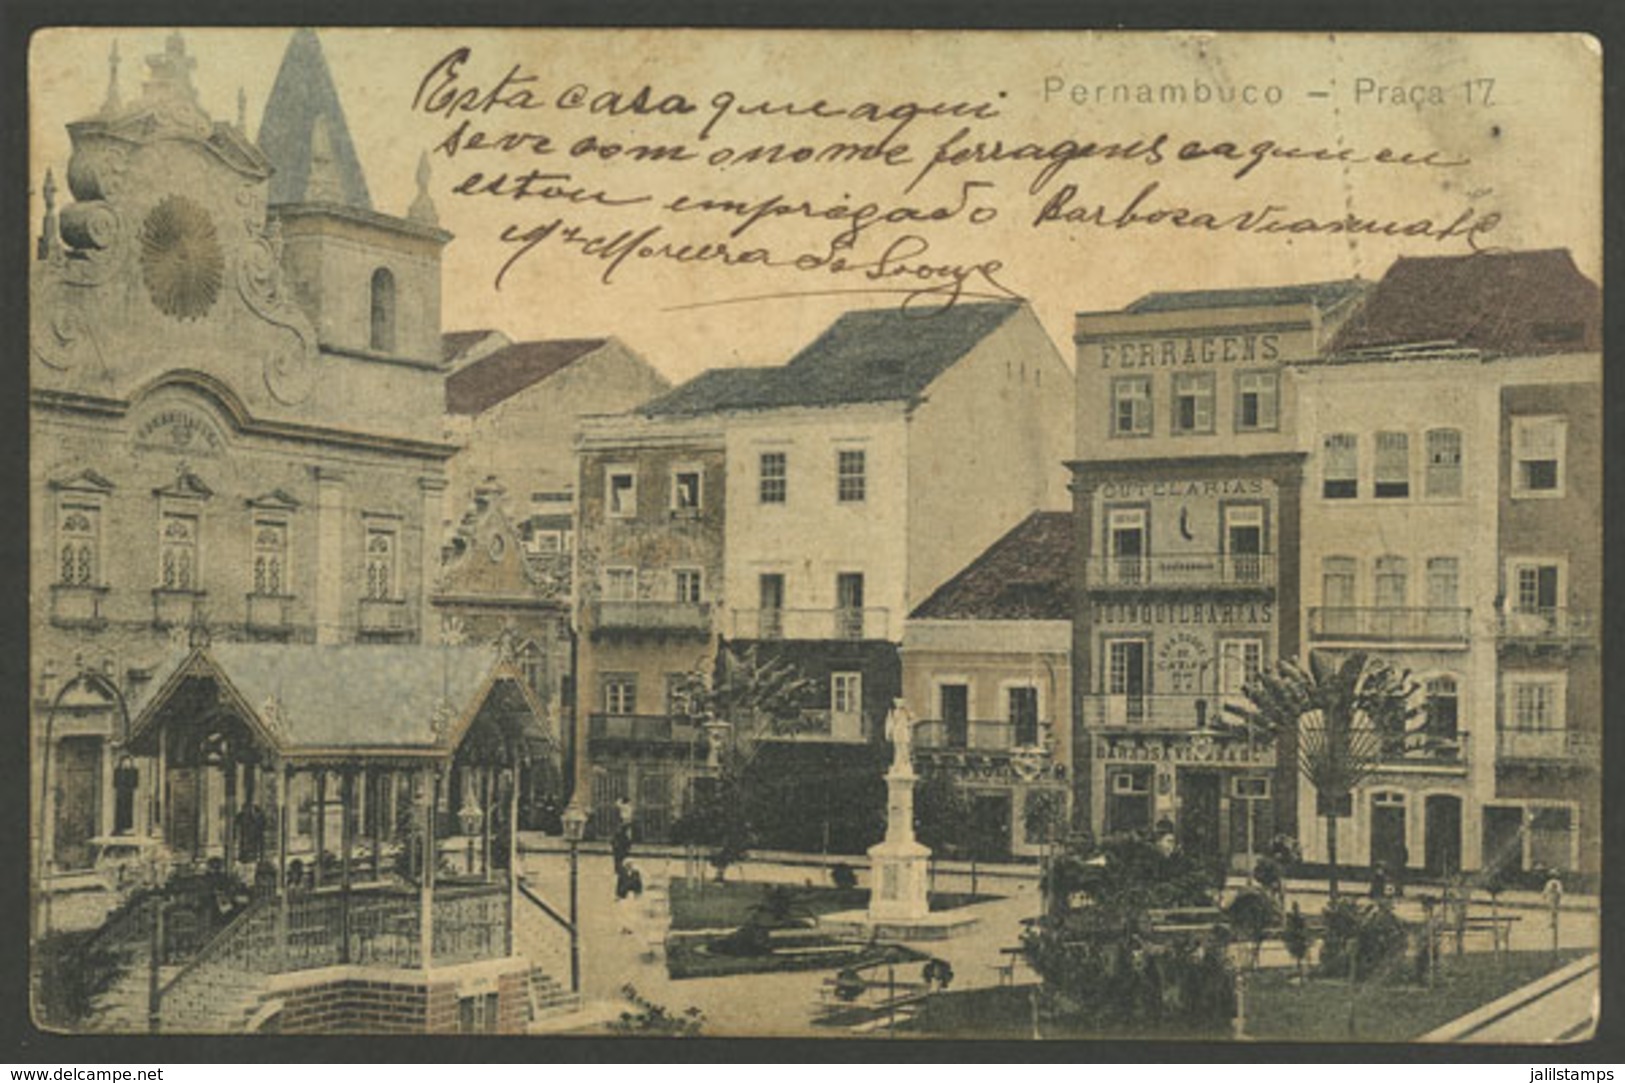 Pernambuco - Praça 17.
Esta casa que aqui
seve com o nome ferragens e a quen eu
estou empregado Barbosa Vianna & C
Mel Moreira de Souza
FERRAGENS
CUTELARIAS
QUINQUILHARIAS
77
www.delcampe.net
jalilstamps